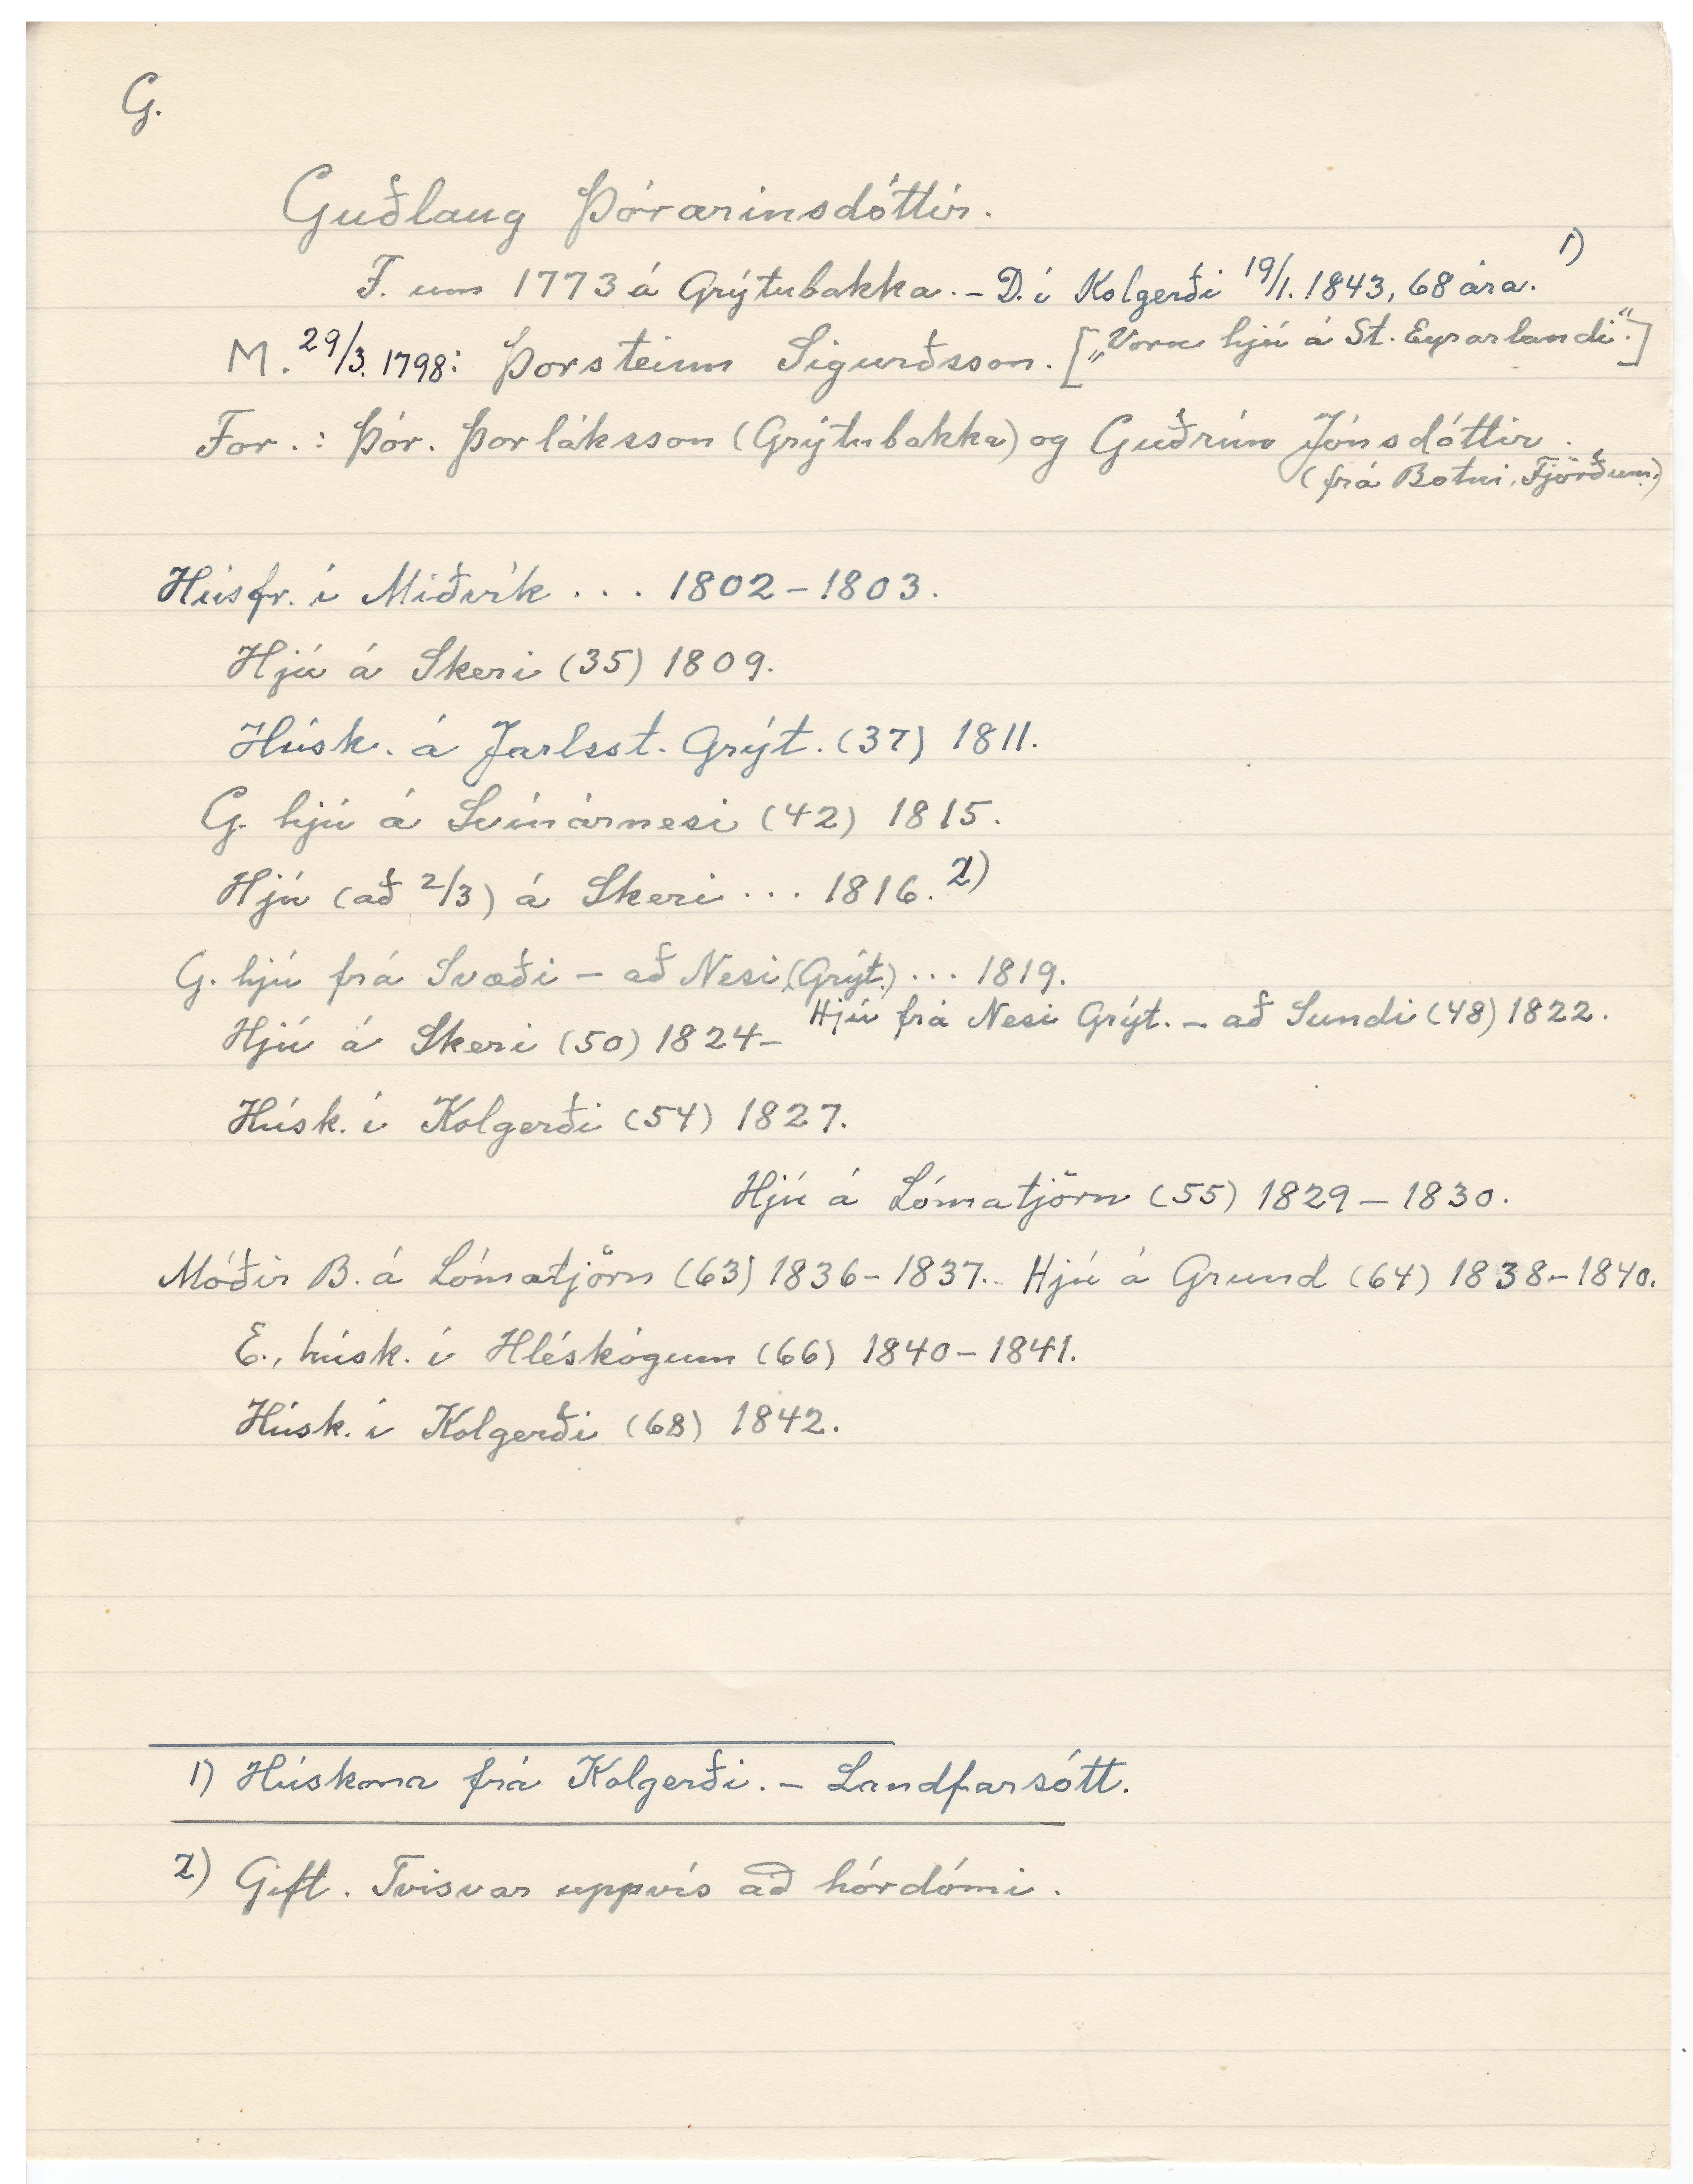 G.
Guðlaug Þórarinsdóttir.
F. um 1773 á Grýtubakka. – D. í Kolgerði 19/1. 1843, 68 ára. 1)
M. 29/3. 1798: Þorsteinn Sigurðsson. [„Voru hjú á St. Eyrarlandi“.]
For.: Þór. Þorláksson (Grýtubakka) og Guðrún Jónsdóttir.
(frá Botni, Fjörðum.)
Húsfr. í Miðvík ... 1802–1803.
Hjú á Skeri (35) 1809.
Húsk. á Jarlsst. Grýt. (37) 1811.
G. hjú á Svínárnesi (42) 1815.
Hjú (að 2/3) á Skeri ... 1816. 2)
G. hjú frá Svæði – að Nesi (Grýt.) ... 1819.
Hjú frá Nesi Grýt. – að Sundi (48) 1822.
Hjú á Skeri (50) 1824–
Húsk. í Kolgerði (54) 1827.
Hjú á Lómatjörn (55) 1829–1830.
Móðir B. á Lómatjörn (63) 1836–1837. Hjú á Grund (64) 1838–1840.
E., húsk. í Hléskógum (66) 1840–1841.
Húsk. í Kolgerði (68) 1842.
1) Húskona frá Kolgerði. – Landfarsótt.
2) Gift. Tvisvar uppvís að hórdómi.